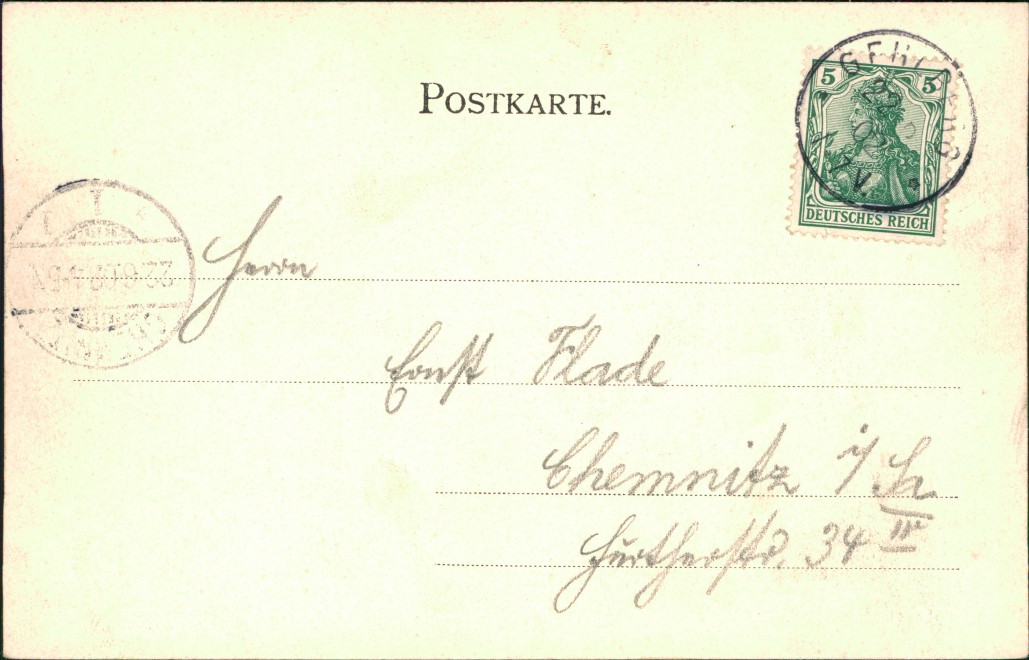 POSTKARTE.
5 5
DEUTSCHES REICH
Herrn
Ernst Flade
Chemnitz i/Sa
34 III